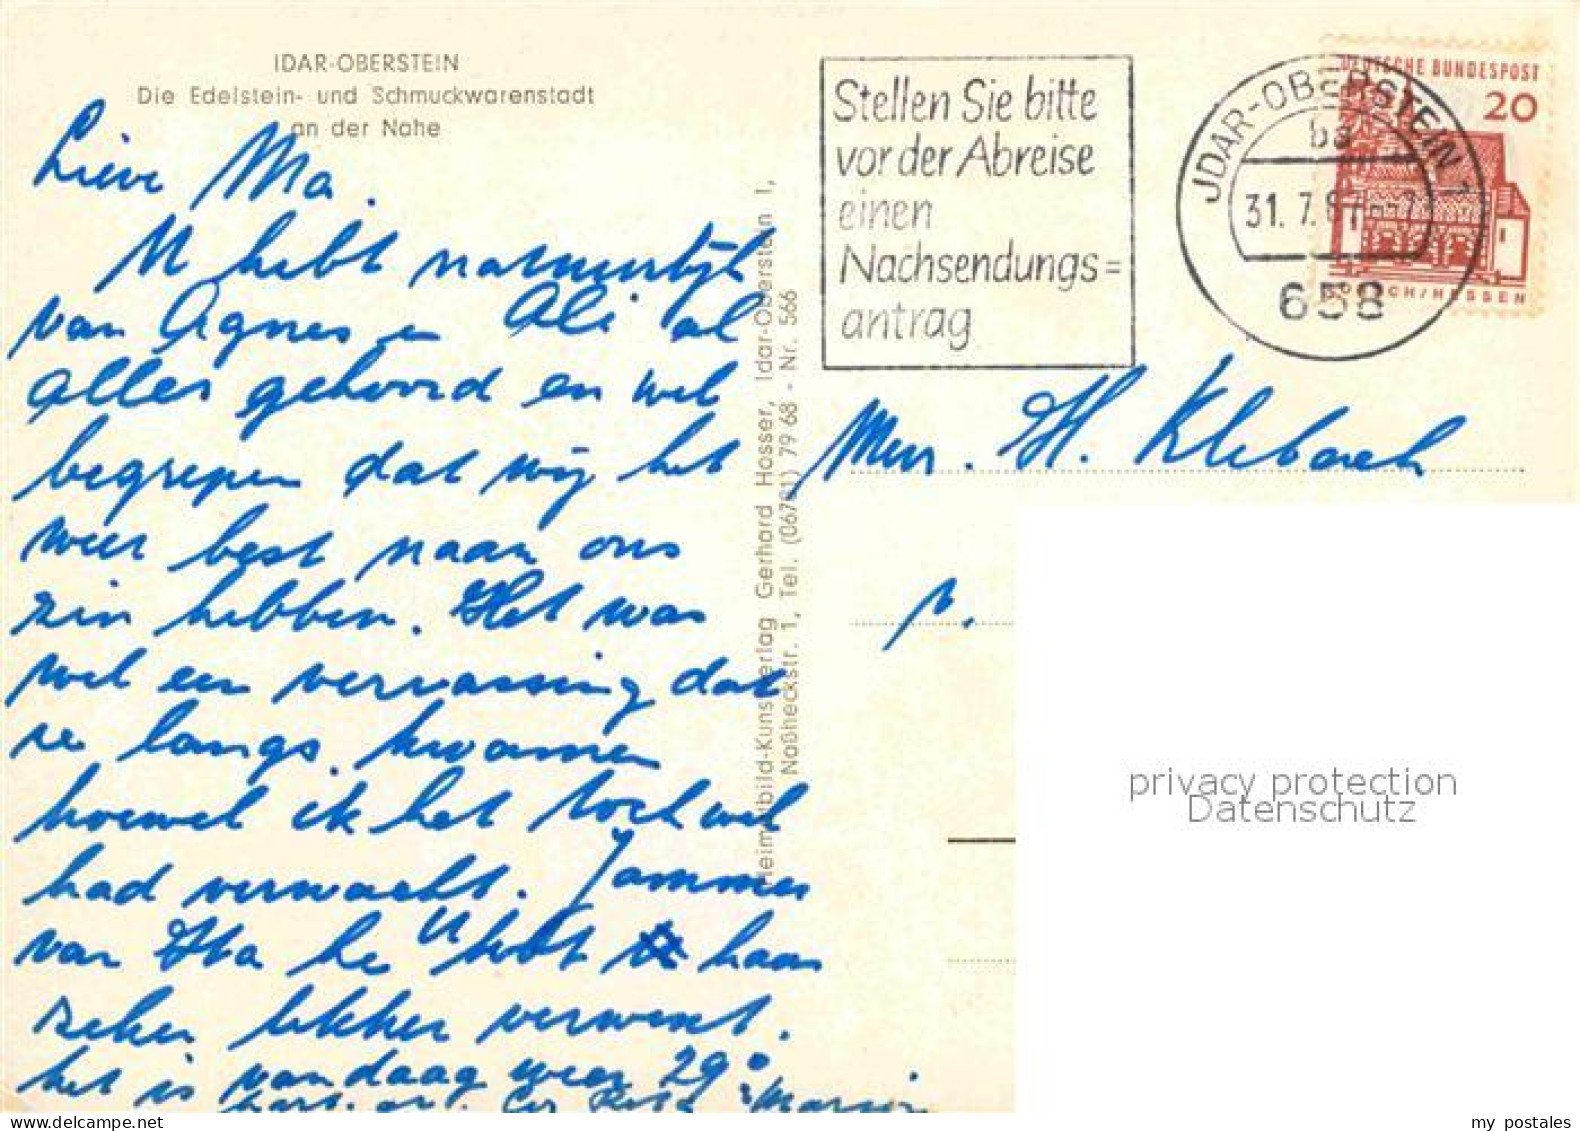 IDAR-OBERSTEIN
Die Edelstein- und Schmuckwarenstadt
an der Nahe
Lieve Ma.
U hebt natuurlijk
van Agnes en Ali al
alles gehoord en wel
begrepen dat wij het
weer best naar ons
zin hebben. Het was
wel een verrassing dat
ze langs kwamen
hoewel ik het toch wel
had verwacht. Jammer
van Ha he U hebt haar
zeker lekker verwent.
het is vandaag weer 29°
hart. gr.
Heimatbild-Kunstverlag Gerhard Hosser, Idar-Oberstein 1,
Naßheckstr. 1, Tel. (06781) 79 68 - Nr. 566
Stellen Sie bitte
vor der Abreise
einen
Nachsendungs=
antrag
JDAR-OBERSTEIN 1
ba
31. 7. 67
658
DEUTSCHE BUNDESPOST
20
LORSCH/HESSEN
Mevr. H. Klebach
privacy protection
Datenschutz
my postales